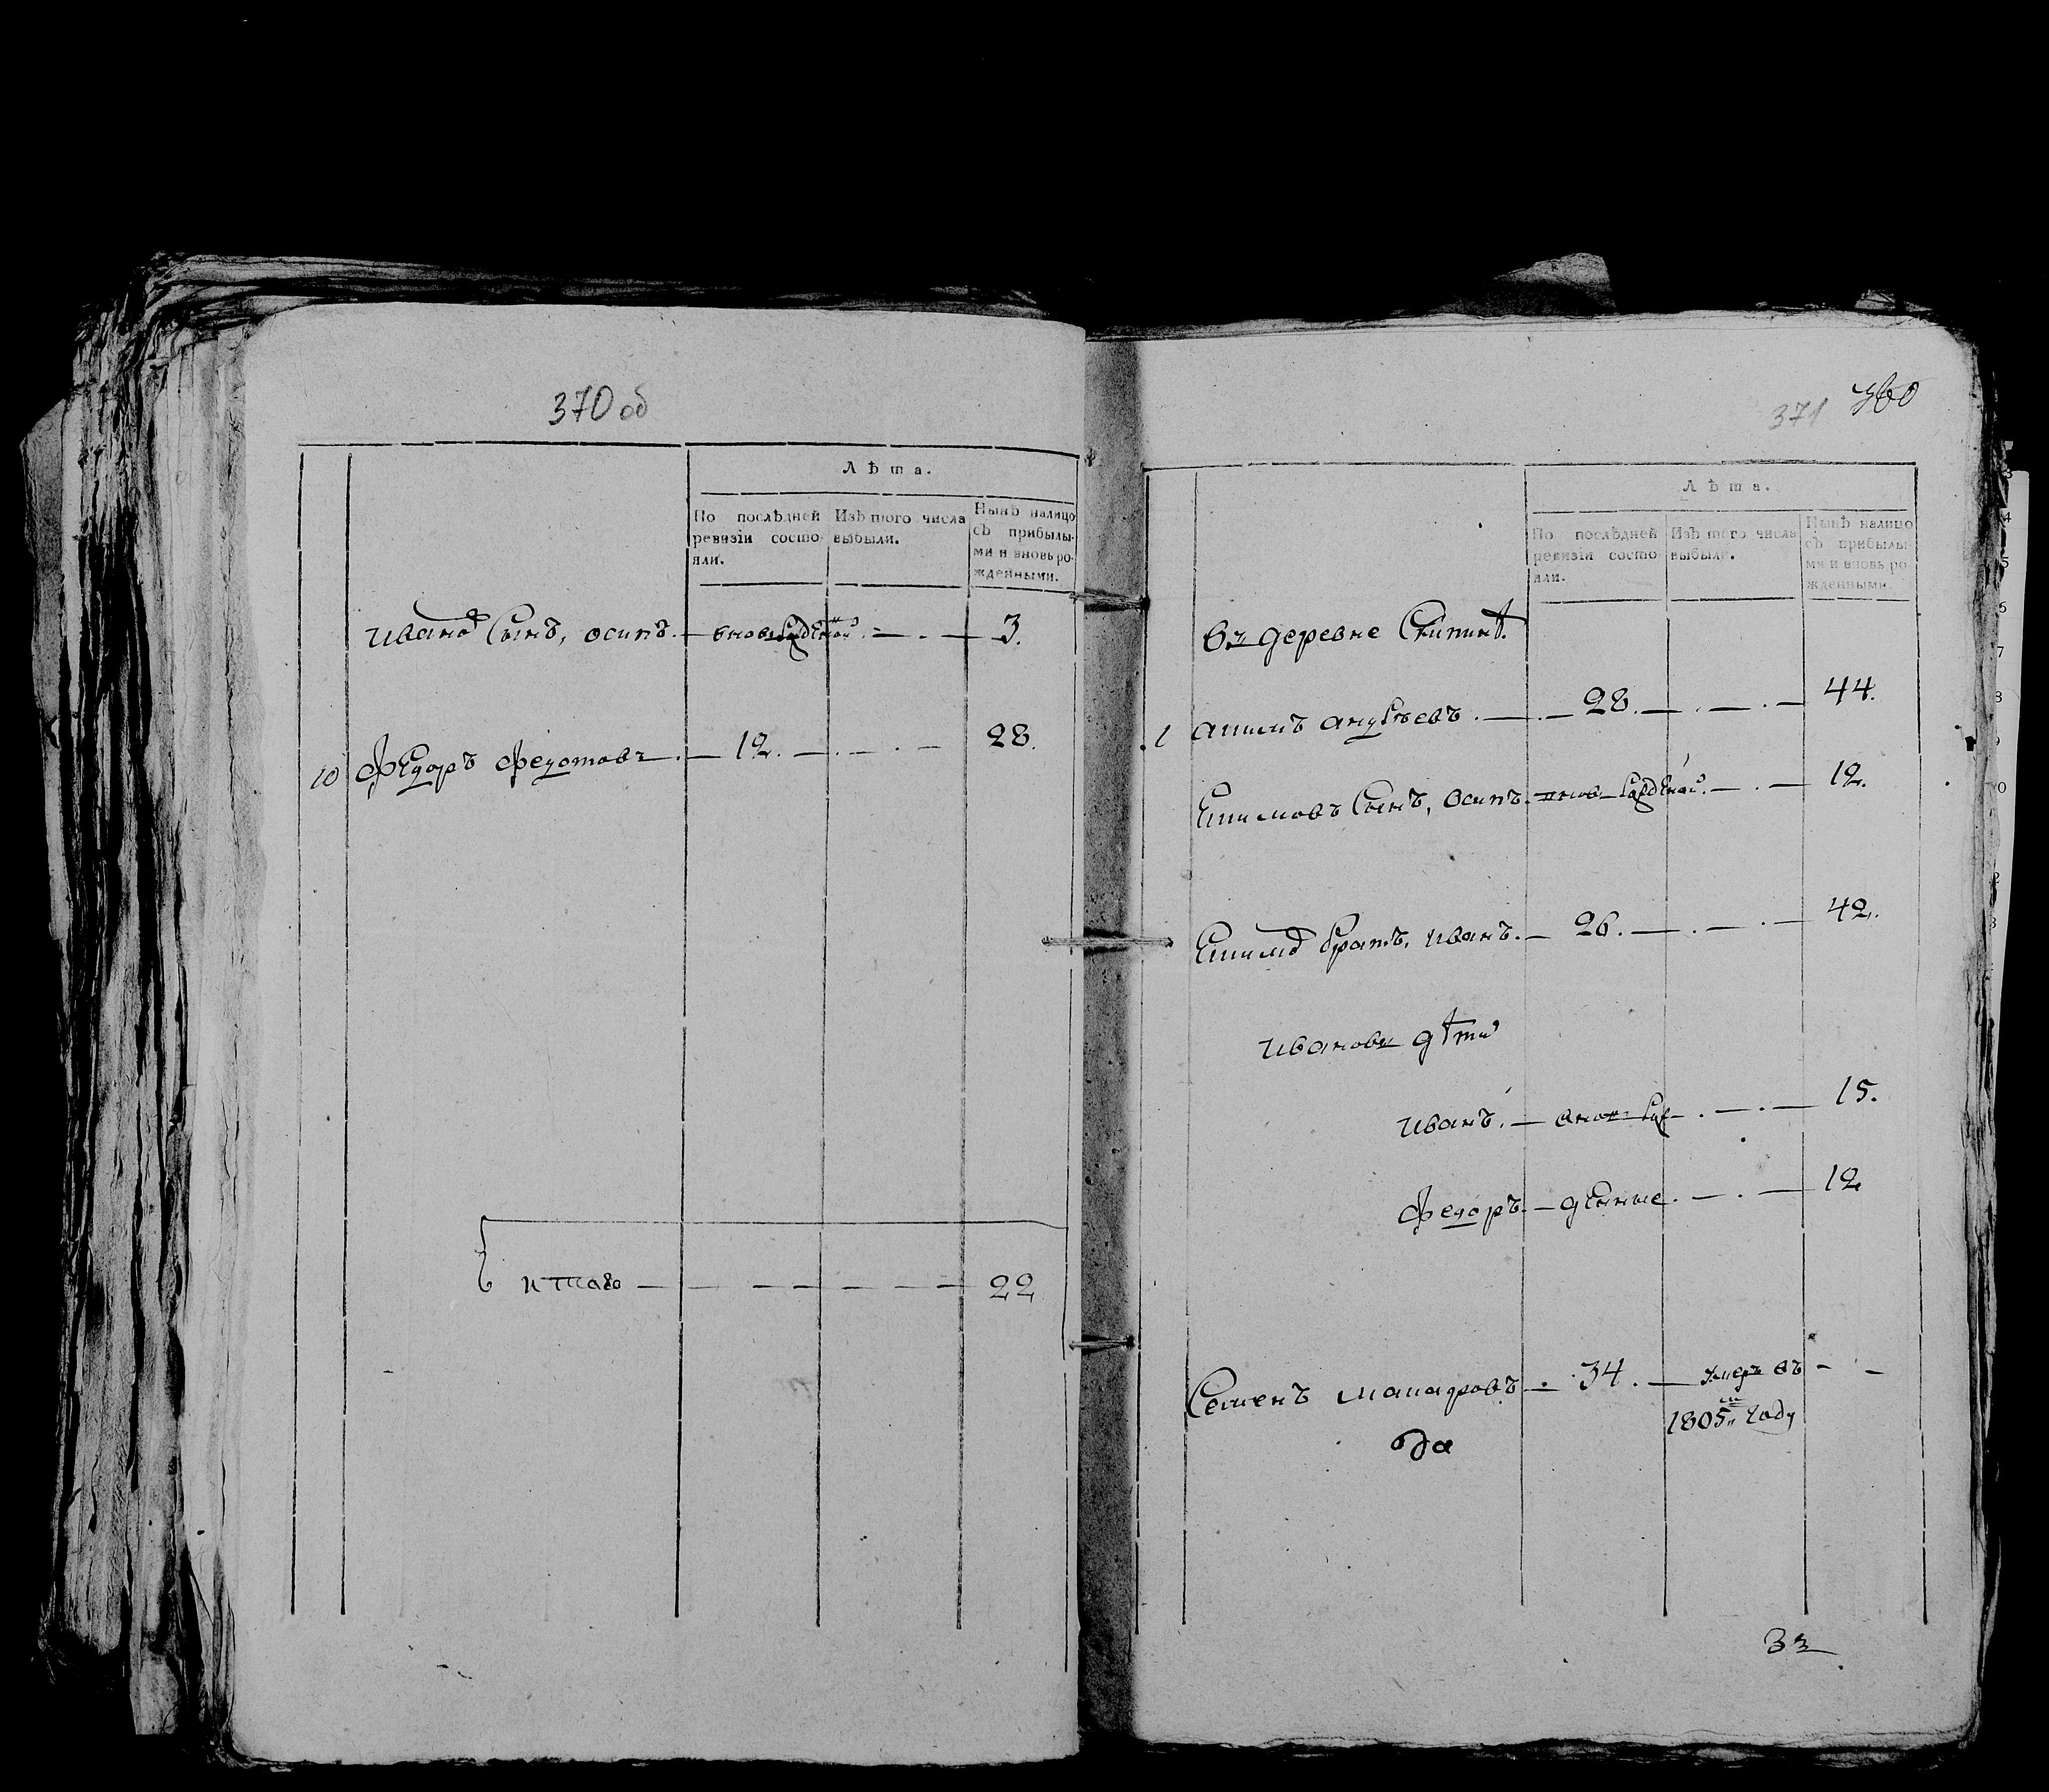 370 об
Лѣта.
По послѣдней ревизіи состояли.
Изъ того числа выбыли.
Нынѣ налицо съ прибылыми и вновь рожденными.
Ивановъ Сынъ, осипъ. 3.
10 Федоръ Федотовъ. 12. 28.
итого 22
371 360
Лѣта.
По послѣдней ревизіи состояли.
Изъ того числа выбыли.
Нынѣ налицо съ прибылыми и вновь рожденными.
въ деревне
1 андреевъ. 28. 44.
Сынъ, Осипъ. 12.
братъ, иванъ. 26. 42.
ивановы дѣти
иванъ. внов рож 15.
Федоръ. денные. 12
Семенъ 34. умеръ въ
1805м году